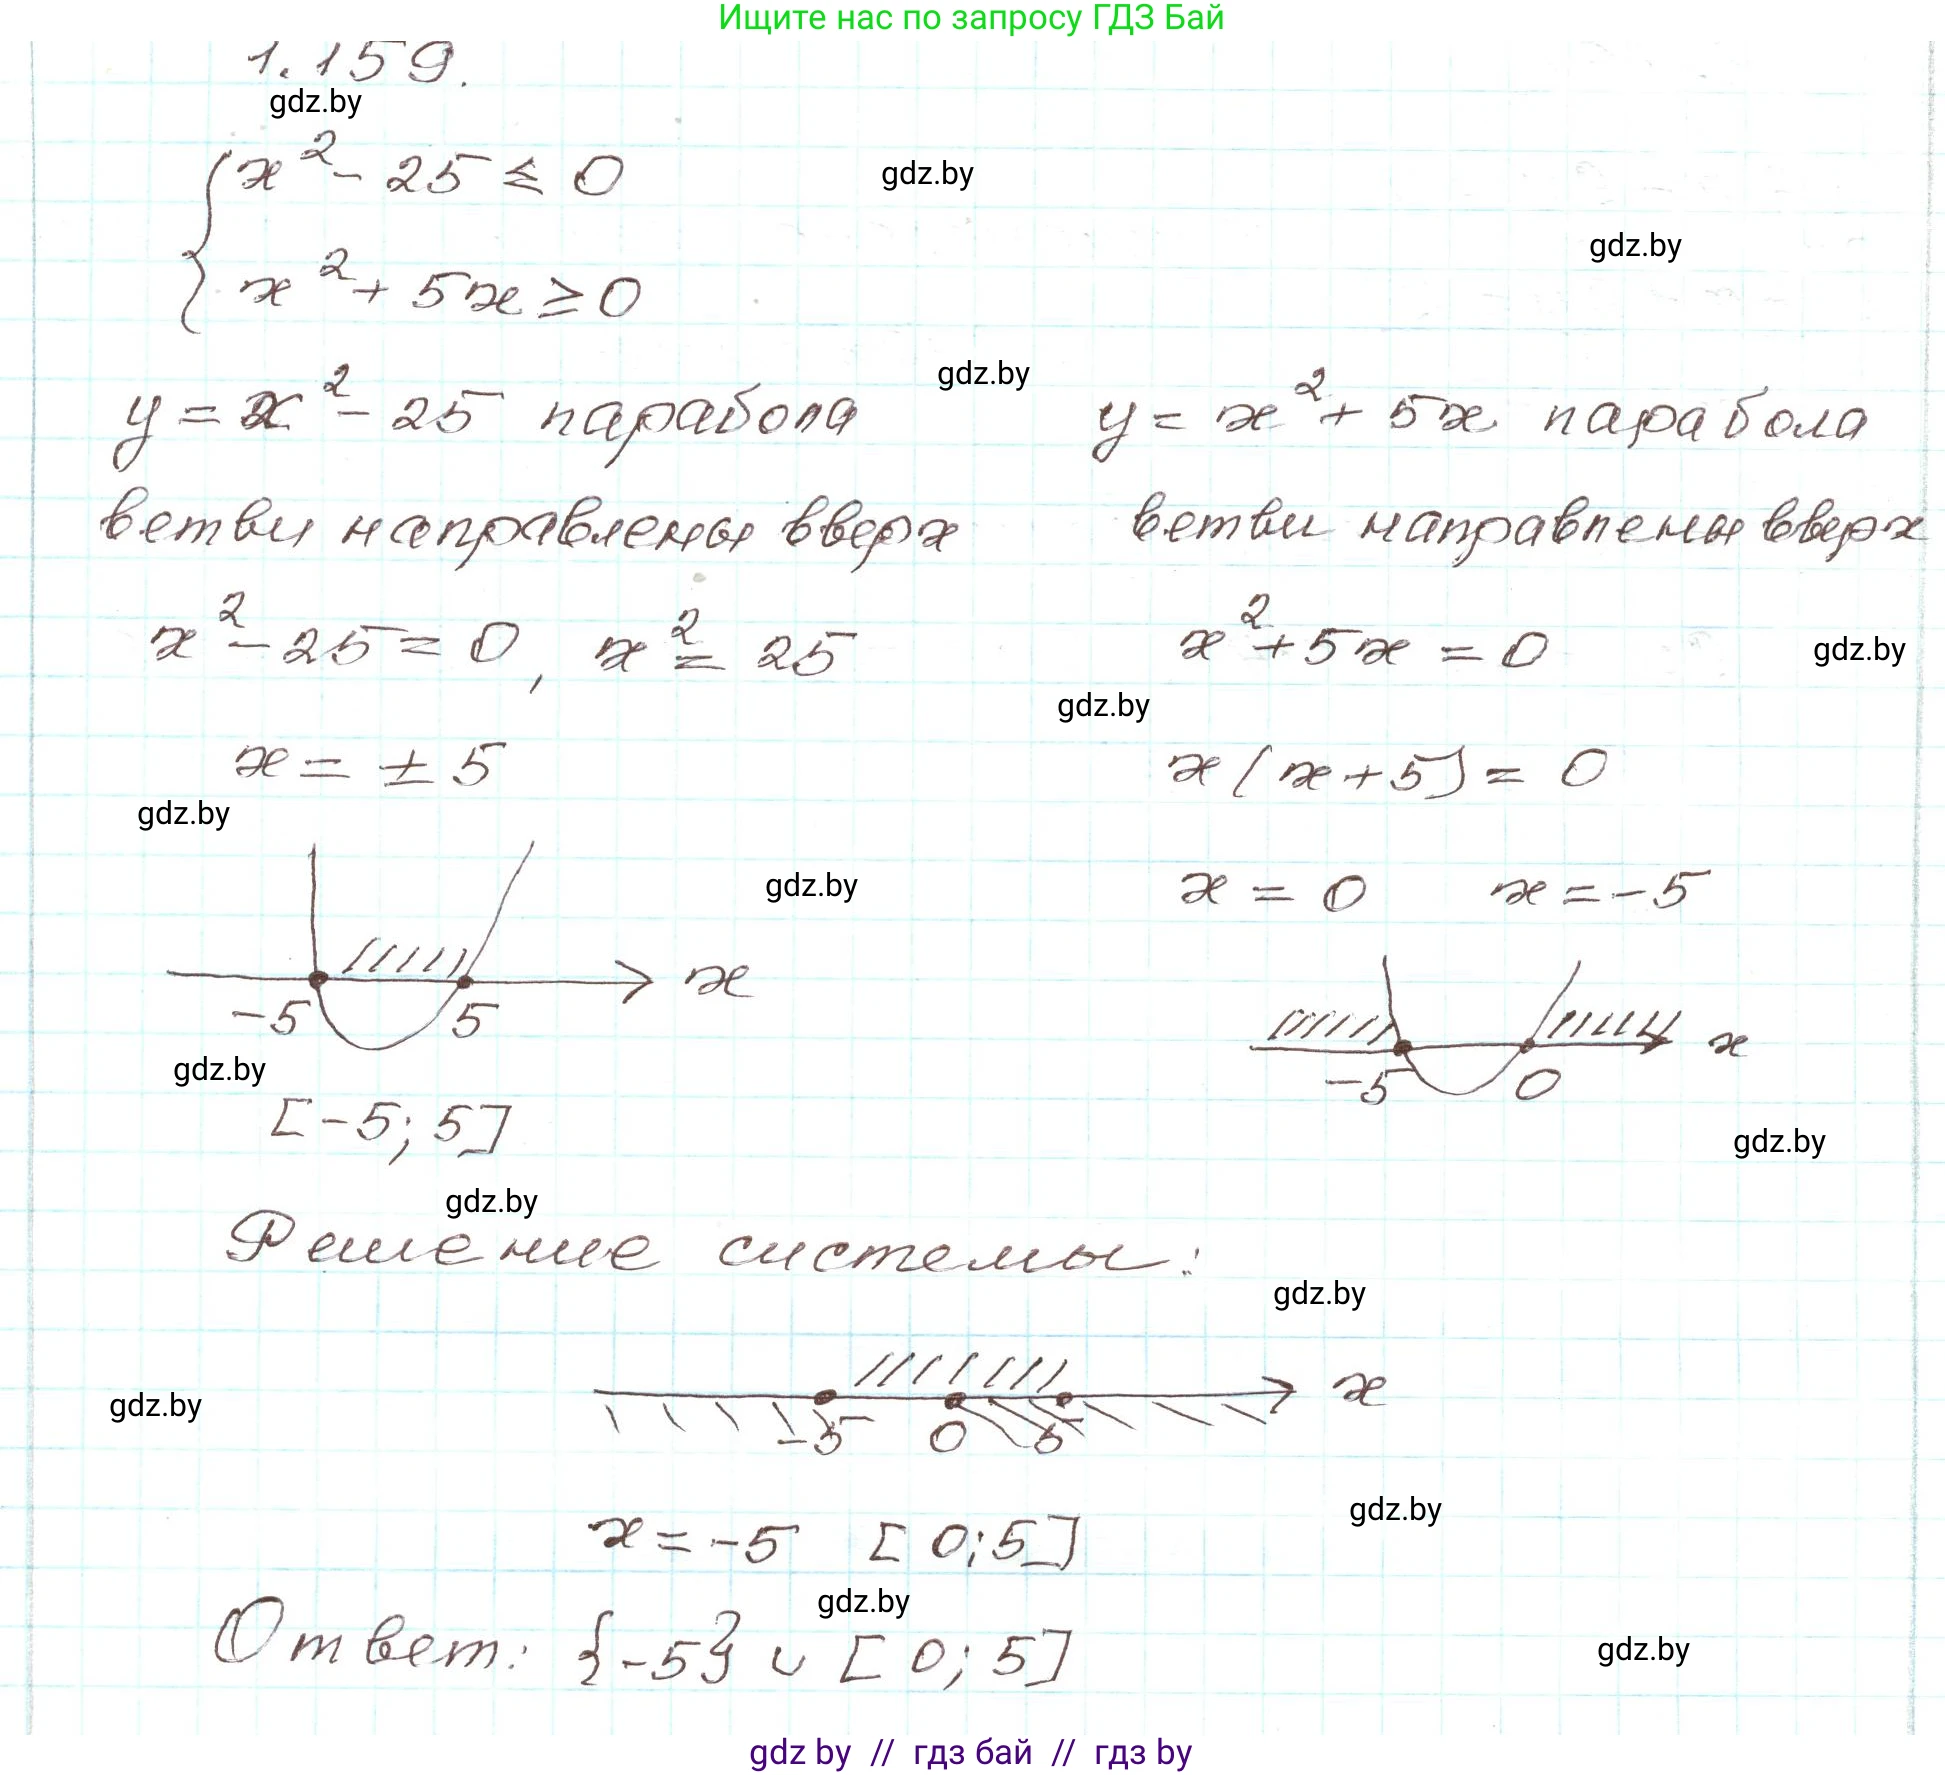 Ищите нас по запросу ГДЗ Бай
1.159.
gdz.by
x² - 25 ≤ 0
gdz.by
gdz.by
x² + 5x ≥ 0
gdz.by
y = x² - 25 парабола
y = x² + 5x парабола
ветви направлены вверх
ветви направлены вверх
x² - 25 = 0, x² = 25
x² + 5x = 0
gdz.by
gdz.by
x = ± 5
x(x + 5) = 0
gdz.by
gdz.by
x = 0 x = -5
-5 5 x
-5 0 x
gdz.by
[-5; 5]
gdz.by
gdz.by
Решение системы:
gdz.by
gdz.by
-5 0 5 x
gdz.by
x = -5 [0; 5]
gdz.by
Ответ: {-5} ∪ [0; 5]
gdz.by
gdz by // гдз бай // гдз by